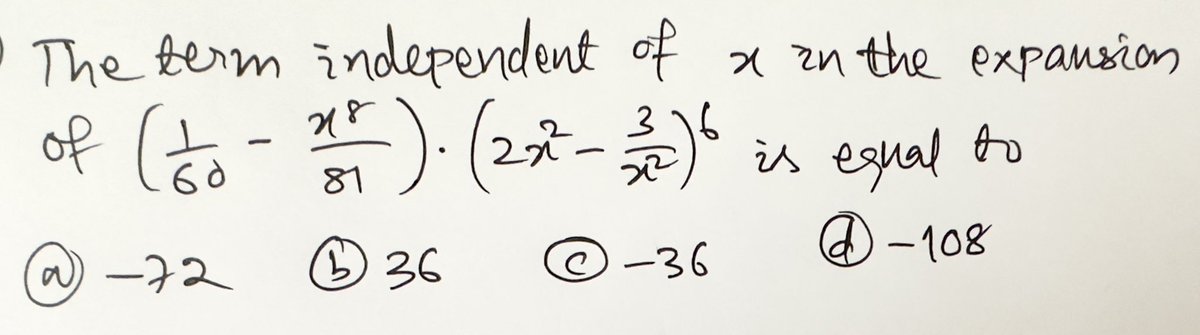 The term independent of x in the expansion
of (1/60 - x⁸/81) · (2x² - 3/x²)⁶ is equal to
ⓐ -72 ⓑ 36 ⓒ -36 ⓓ -108